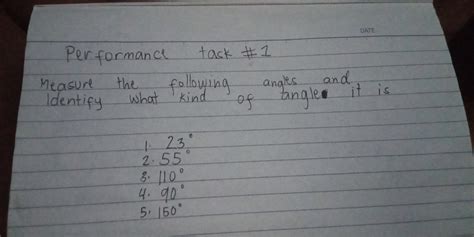 DATE
Performance task #1
Measure the following angles and
Identify what kind of angle it is
1. 23°
2. 55°
3. 110°
4. 90°
5. 150°